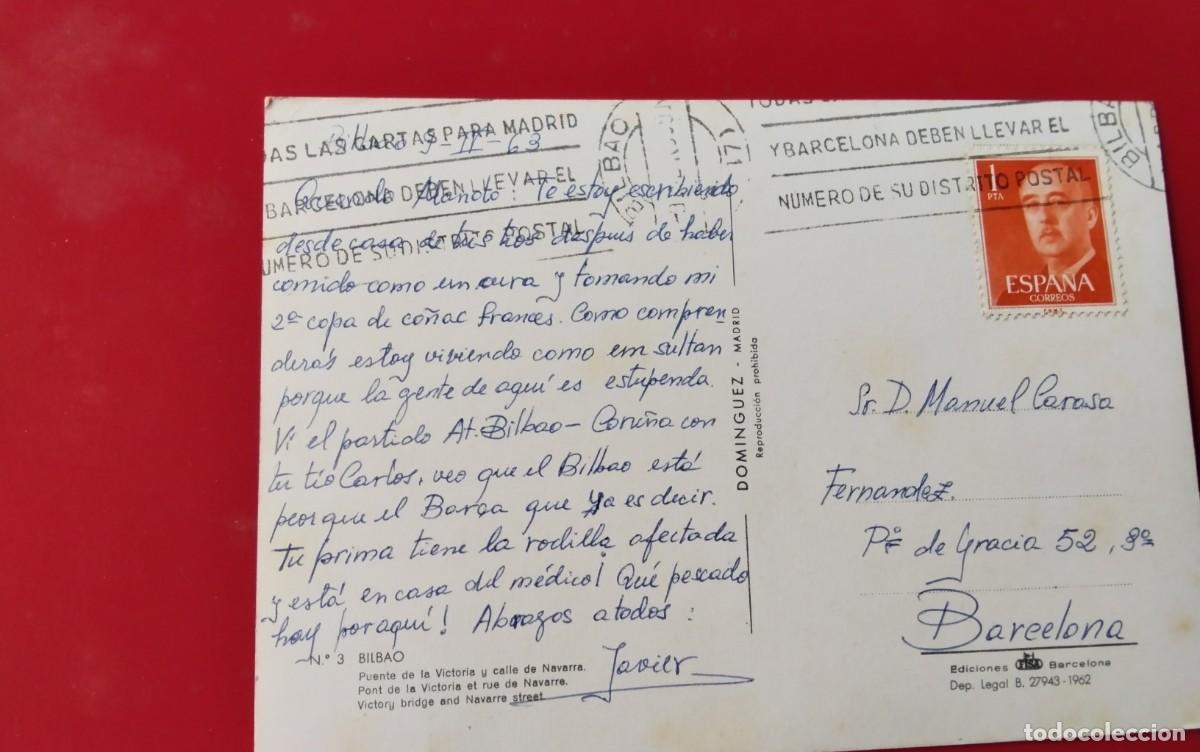 DAS LAS CARTAS PARA MADRID
BARCELONA DEBEN LLEVAR EL
UMERO DE SU DISTRITO POSTAL
BILBAO
(17)
TODAS
Y BARCELONA DEBEN LLEVAR EL
NUMERO DE SU DISTRITO POSTAL
BILBA
1
PTA
ESPAÑA
CORREOS
Bilbao 9-II-63
Querido Manolo: Te estoy escribiendo
desde casa de tus tios despuis de haber
comido como un cura y tomando mi
2ª copa de coñac frances. Como compren
deras estoy viviendo como un sultan
porque la gente de aquí es estupenda.
Vi el partido At. Bilbao - Coruña con
tu tío Carlos, veo que el Bilbao está
peor que el Barça que ya es decir.
Tu prima tiene la rodilla afectada
y está en casa del médico! Qué pescado
hay por aquí! Abrazos a todos:
Javier
Nº 3 BILBAO
Puente de la Victoria y calle de Navarra.
Pont de la Victoria et rue de Navarre.
Victory bridge and Navarre street.
DOMINGUEZ - MADRID
Reproducción prohibida
Sr. D. Manuel Carasa
Fernandez.
Pº de Gracia 52, 3º
Barcelona
Ediciones FISA Barcelona
Dep. Legal B. 27943-1962
todocoleccion